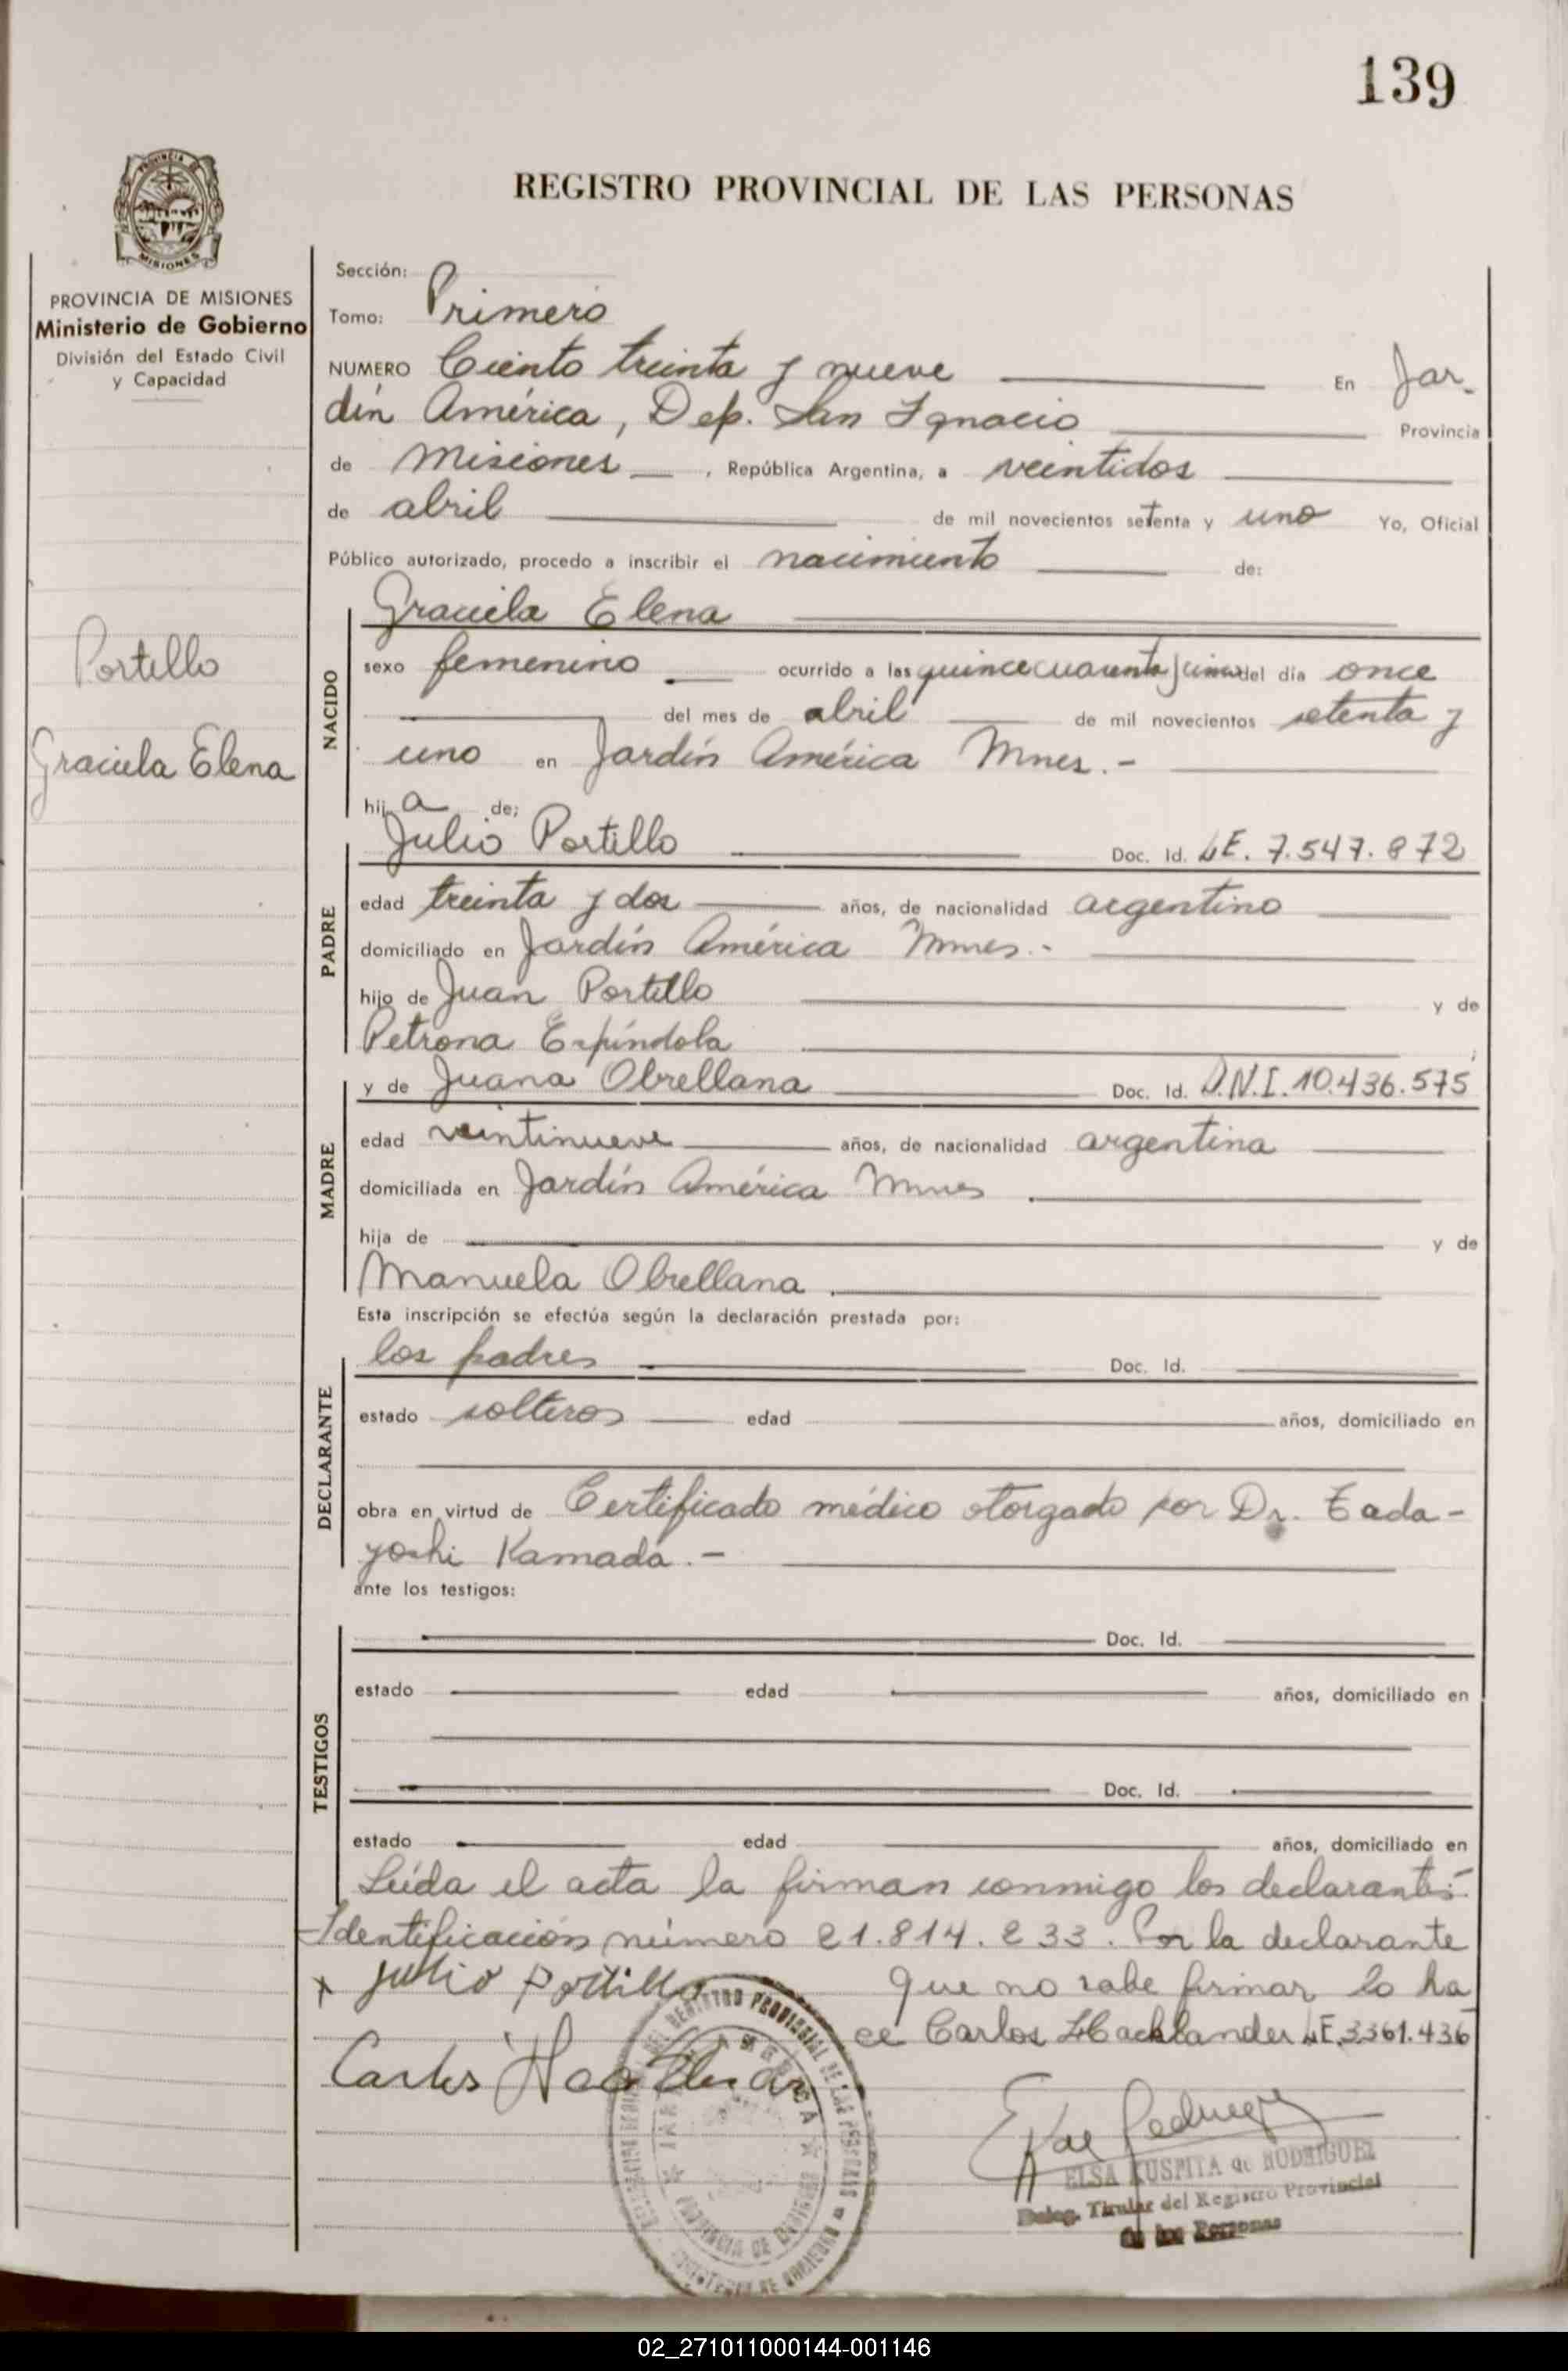 139
REGISTRO PROVINCIAL DE LAS PERSONAS
PROVINCIA DE MISIONES
PROVINCIA DE MISIONES
Ministerio de Gobierno
División del Estado Civil
y Capacidad
Portillo
Graciela Elena
Sección:
Tomo: Primero
NUMERO Ciento treinta y nueve En Jar-
dín América, Dep. San Ignacio Provincia
de Misiones, República Argentina, a veintidos
de abril de mil novecientos setenta y uno Yo, Oficial
Público autorizado, procedo a inscribir el nacimiento de:
Graciela Elena
NACIDO
sexo femenino ocurrido a las quince cuarenta y cinco del día once
del mes de abril de mil novecientos setenta y
uno en Jardín América Mnes.-
hija de;
PADRE
Julio Portillo Doc. Id. LE. 7.547.872
edad treinta y dos años, de nacionalidad argentino
domiciliado en Jardín América Mnes.-
hijo de Juan Portillo y de
Petrona Espíndola
MADRE
y de Juana Obrellana Doc. Id. D.N.I. 10.436.575
edad veintinueve años, de nacionalidad argentina
domiciliada en Jardín América Mnes
hija de y de
Manuela Obrellana
Esta inscripción se efectúa según la declaración prestada por:
DECLARANTE
los padres Doc. Id.
estado solteros edad años, domiciliado en
obra en virtud de Certificado médico otorgado por Dr. Tada-
yoshi Kamada.-
ante los testigos:
TESTIGOS
Doc. Id.
estado edad años, domiciliado en
Doc. Id.
estado edad años, domiciliado en
Leída el acta la firman conmigo los declarantes.
Identificación número 21.814.233. Por la declarante
x Julio Portillo que no sabe firmar lo ha
ce Carlos Hacklander LE.3361.436
Carlos Hacklander
ELSA KUSPITA de RODRIGUEZ
Deleg. Titular del Registro Provincial
de las Personas
02_271011000144-001146